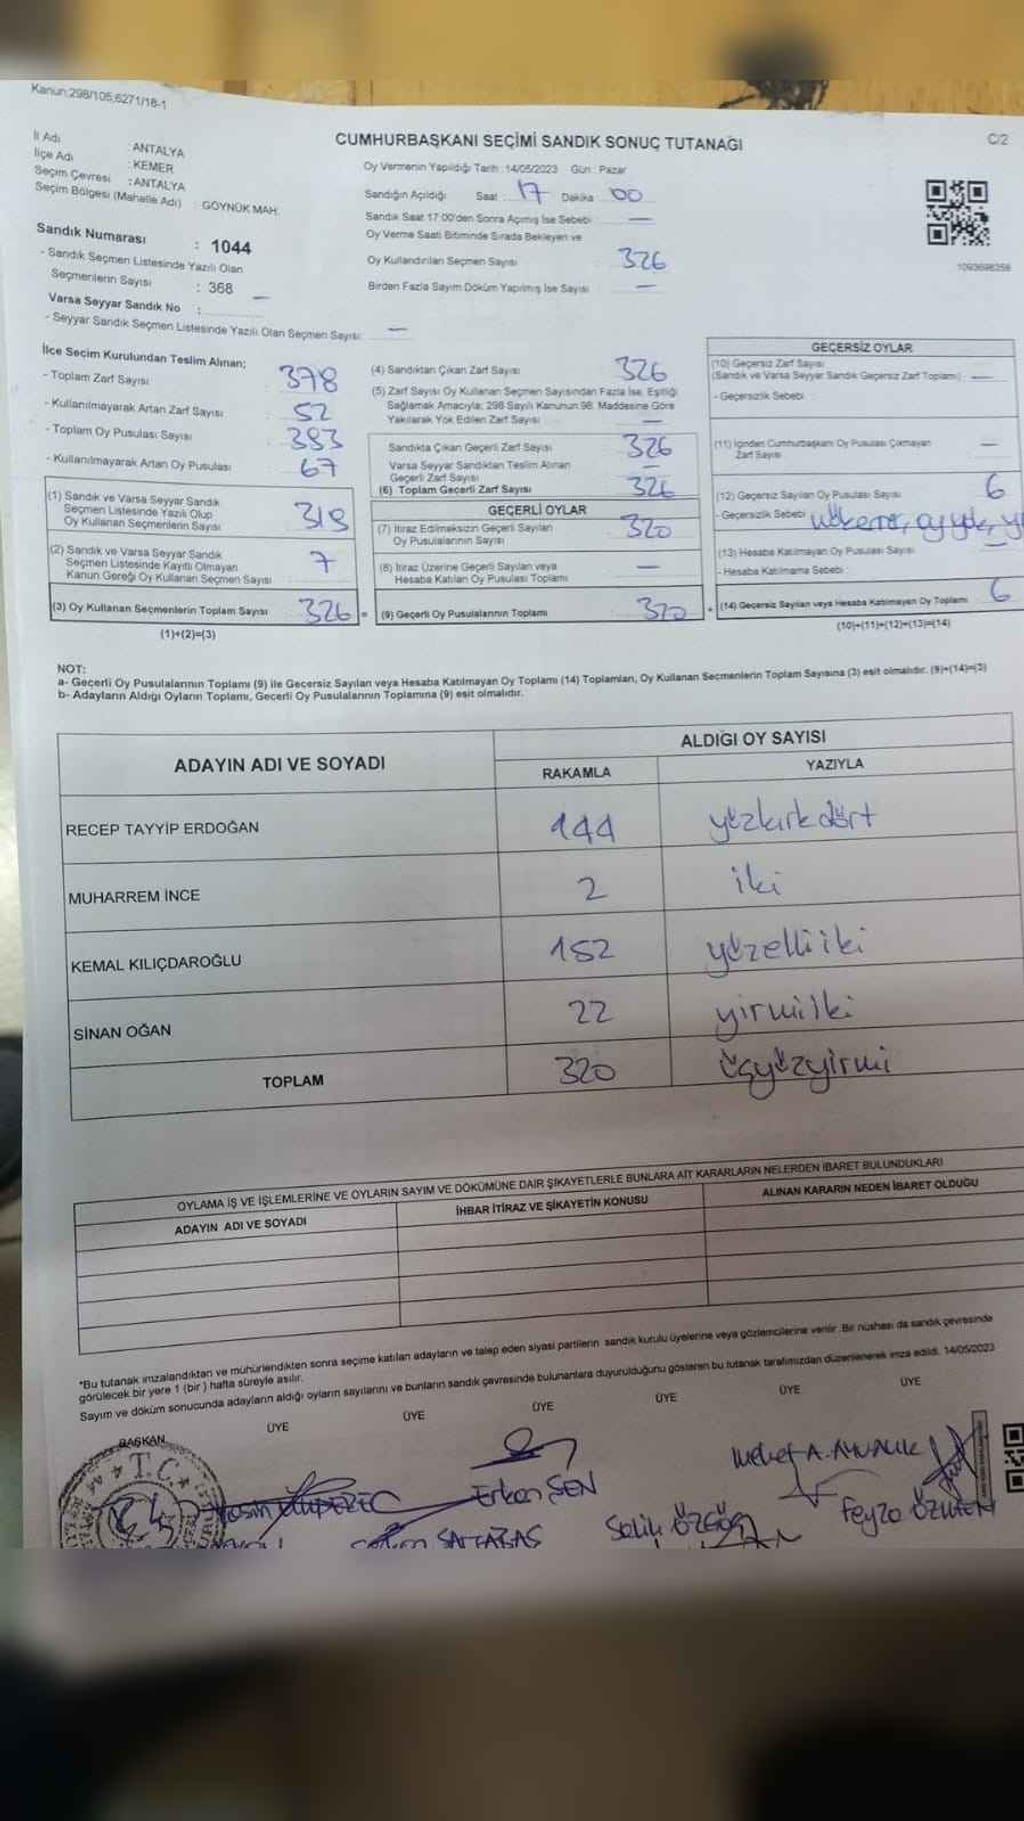 Kanun:298/105,6271/18-1
CUMHURBAŞKANI SEÇİMİ SANDIK SONUÇ TUTANAĞI
C/2
İl Adı : ANTALYA
İlçe Adı : KEMER
Seçim Çevresi : ANTALYA
Seçim Bölgesi (Mahalle Adı) : GÖYNÜK MAH.
Sandık Numarası : 1044
- Sandık Seçmen Listesinde Yazılı Olan
Seçmenlerin Sayısı : 368
Varsa Seyyar Sandık No : —
- Seyyar Sandık Seçmen Listesinde Yazılı Olan Seçmen Sayısı: —
Oy Vermenin Yapıldığı Tarih: 14/05/2023 Gün: Pazar
Sandığın Açıldığı Saat : 17 Dakika : 00
Sandık Saat 17:00'den Sonra Açılmış İse Sebebi —
Oy Verme Saati Bitiminde Sırada Bekleyen ve
Oy Kullandırılan Seçmen Sayısı 326
Birden Fazla Sayım Döküm Yapılmış İse Sayısı —
1093698256
İlçe Seçim Kurulundan Teslim Alınan;
- Toplam Zarf Sayısı 378
- Kullanılmayarak Artan Zarf Sayısı 52
- Toplam Oy Pusulası Sayısı 393
- Kullanılmayarak Artan Oy Pusulası 67
(1) Sandık ve Varsa Seyyar Sandık
Seçmen Listesinde Yazılı Olup
Oy Kullanan Seçmenlerin Sayısı 319
(2) Sandık ve Varsa Seyyar Sandık
Seçmen Listesinde Kayıtlı Olmayan
Kanun Gereği Oy Kullanan Seçmen Sayısı 7
(3) Oy Kullanan Seçmenlerin Toplam Sayısı 326 =
(1)+(2)=(3)
(4) Sandıktan Çıkan Zarf Sayısı 326
(5) Zarf Sayısı Oy Kullanan Seçmen Sayısından Fazla İse, Eşitliği
Sağlamak Amacıyla; 298 Sayılı Kanunun 98. Maddesine Göre
Yakılarak Yok Edilen Zarf Sayısı —
Sandıkta Çıkan Geçerli Zarf Sayısı 326
Varsa Seyyar Sandıktan Teslim Alınan
Geçerli Zarf Sayısı —
(6) Toplam Geçerli Zarf Sayısı 326
GEÇERLİ OYLAR
(7) İtiraz Edilmeksizin Geçerli Sayılan
Oy Pusulalarının Sayısı 320
(8) İtiraz Üzerine Geçerli Sayılan veya
Hesaba Katılan Oy Pusulası Toplamı —
(9) Geçerli Oy Pusulalarının Toplamı 320 +
GEÇERSİZ OYLAR
(10) Geçersiz Zarf Sayısı
(Sandık ve Varsa Seyyar Sandık Geçersiz Zarf Toplamı) : —
- Geçersizlik Sebebi
(11) İçinden Cumhurbaşkanı Oy Pusulası Çıkmayan
Zarf Sayısı —
(12) Geçersiz Sayılan Oy Pusulası Sayısı 6
- Geçersizlik Sebebi oy yok,
(13) Hesaba Katılmayan Oy Pusulası Sayısı —
- Hesaba Katılmama Sebebi :
(14) Geçersiz Sayılan veya Hesaba Katılmayan Oy Toplamı 6
(10)+(11)+(12)+(13)=(14)
NOT:
a- Geçerli Oy Pusulalarının Toplamı (9) ile Geçersiz Sayılan veya Hesaba Katılmayan Oy Toplamı (14) Toplamları, Oy Kullanan Seçmenlerin Toplam Sayısına (3) eşit olmalıdır. (9)+(14)=(3)
b- Adayların Aldığı Oyların Toplamı, Geçerli Oy Pusulalarının Toplamına (9) eşit olmalıdır.
ADAYIN ADI VE SOYADI
ALDIĞI OY SAYISI
RAKAMLA YAZIYLA
RECEP TAYYİP ERDOĞAN 144 yüzkırkdört
MUHARREM İNCE 2 iki
KEMAL KILIÇDAROĞLU 152 yüzelliiki
SİNAN OĞAN 22 yirmiiki
TOPLAM 320 üçyüzyirmi
OYLAMA İŞ VE İŞLEMLERİNE VE OYLARIN SAYIM VE DÖKÜMÜNE DAİR ŞİKAYETLERLE BUNLARA AİT KARARLARIN NELERDEN İBARET BULUNDUKLARI
ADAYIN ADI VE SOYADI İHBAR İTİRAZ VE ŞİKAYETİN KONUSU ALINAN KARARIN NEDEN İBARET OLDUĞU
"Bu tutanak imzalandıktan ve mühürlendikten sonra seçime katılan adayların ve talep eden siyasi partilerin sandık kurulu üyelerine veya gözlemcilerine verilir. Bir nüshası da sandık çevresinde
görülecek bir yere 1 (bir) hafta süreyle asılır.
Sayım ve döküm sonucunda adayların aldığı oyların sayılarını ve bunların sandık çevresinde bulunanlara duyurulduğunu gösteren bu tutanak tarafımızdan düzenlenerek imza edildi. 14/05/2023
BAŞKAN ÜYE ÜYE ÜYE ÜYE ÜYE ÜYE
T.C.
Erkan ŞEN
Mehmet A.
Salih ÖZGÜR
Feyza